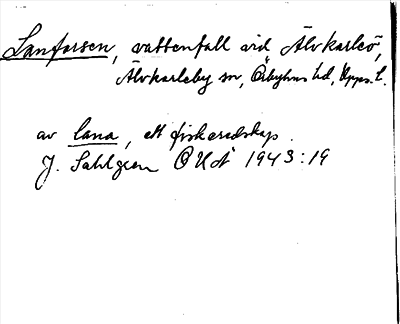 Lanforsen, vattenfall vid Älvkarleö,
Älvkarleby sn, Örbyhus hd, Upps. l.
av lana, ett fiskeredskap.
J. Sahlgren OUÅ 1943:19